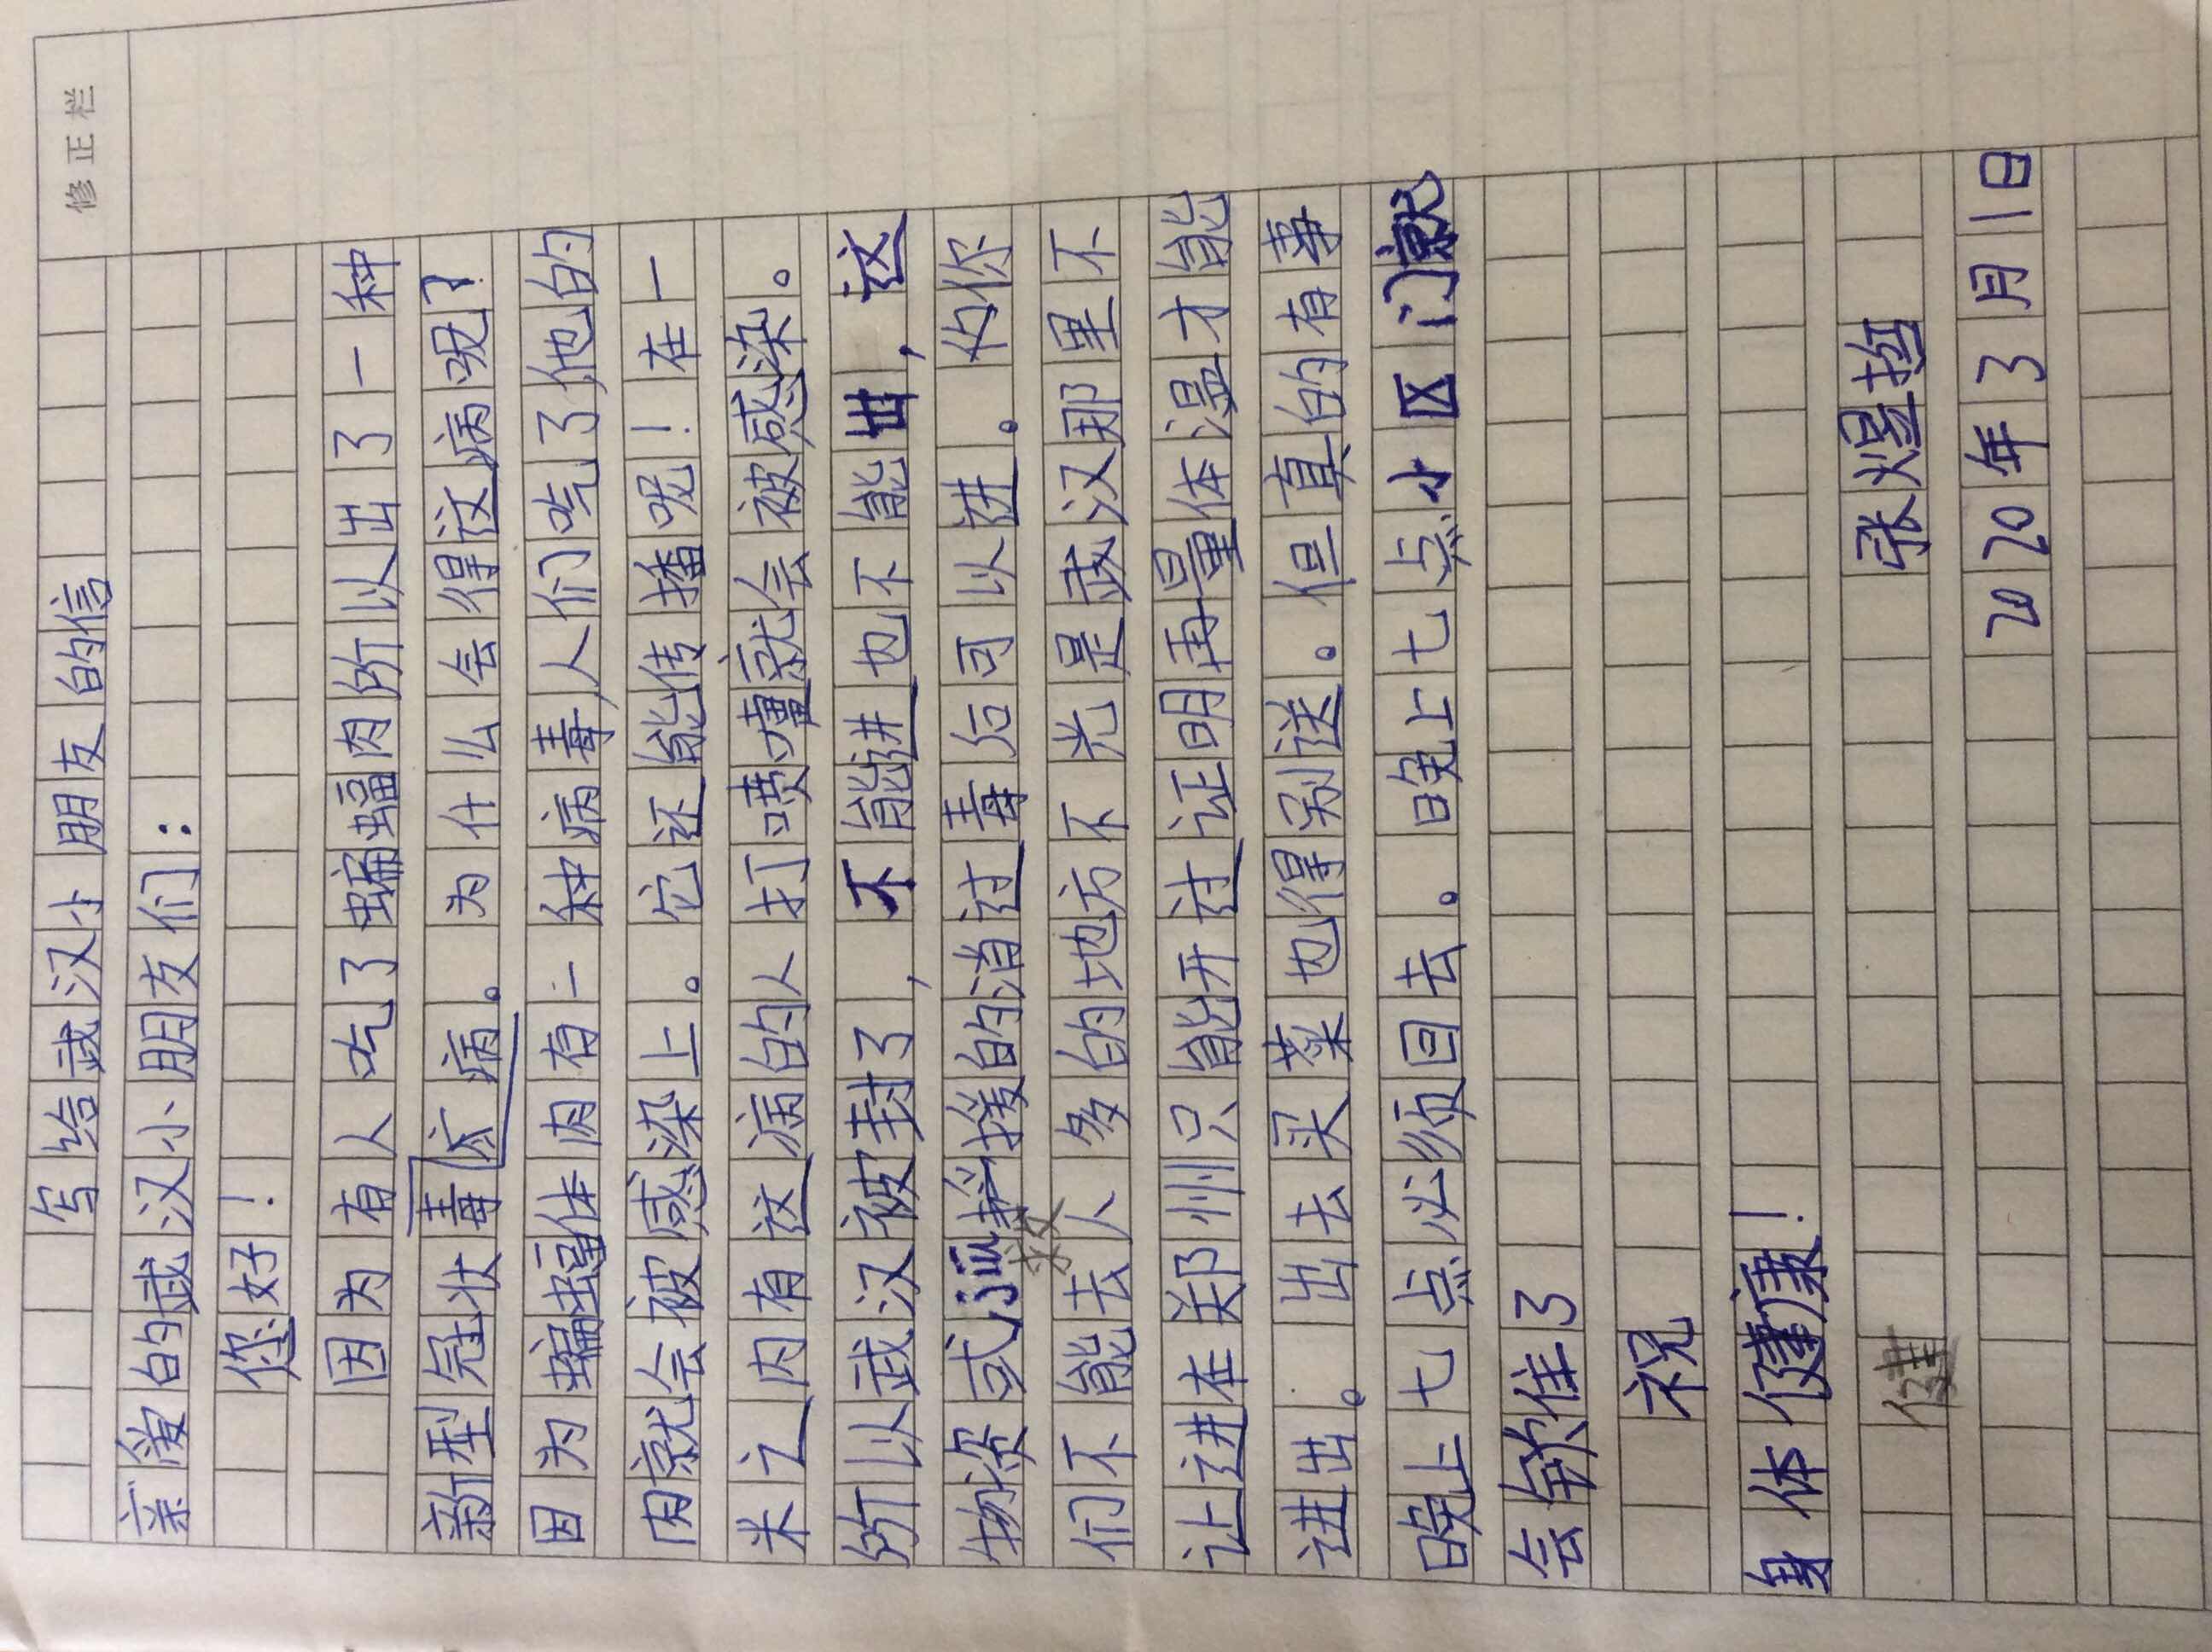 修正栏
写给武汉小朋友的信
亲爱的武汉小朋友们：
您好！
因为有人吃了蝙蝠肉所以出了一种
新型冠状毒疒病。为什么会得这病呢？
因为蝙蝠体内有一种病毒，人们吃了他的
肉就会被感染上。它还能传播呢！在一
米之内有这病的人打喷嚏就会被感染。
所以武汉被封了，不能进也不能出，这
物资或 救援的消过毒后可以进。 你
们不能去人多的地方不光是武汉那里不
让进在郑州只能开过证明再量体温才能
进出。出去买菜也得别送。但真的有事
晚上七点必须回去。晚上七点小区门就
会锁住了
祝
身体健康！
健
张煜哲
2020年3月1日